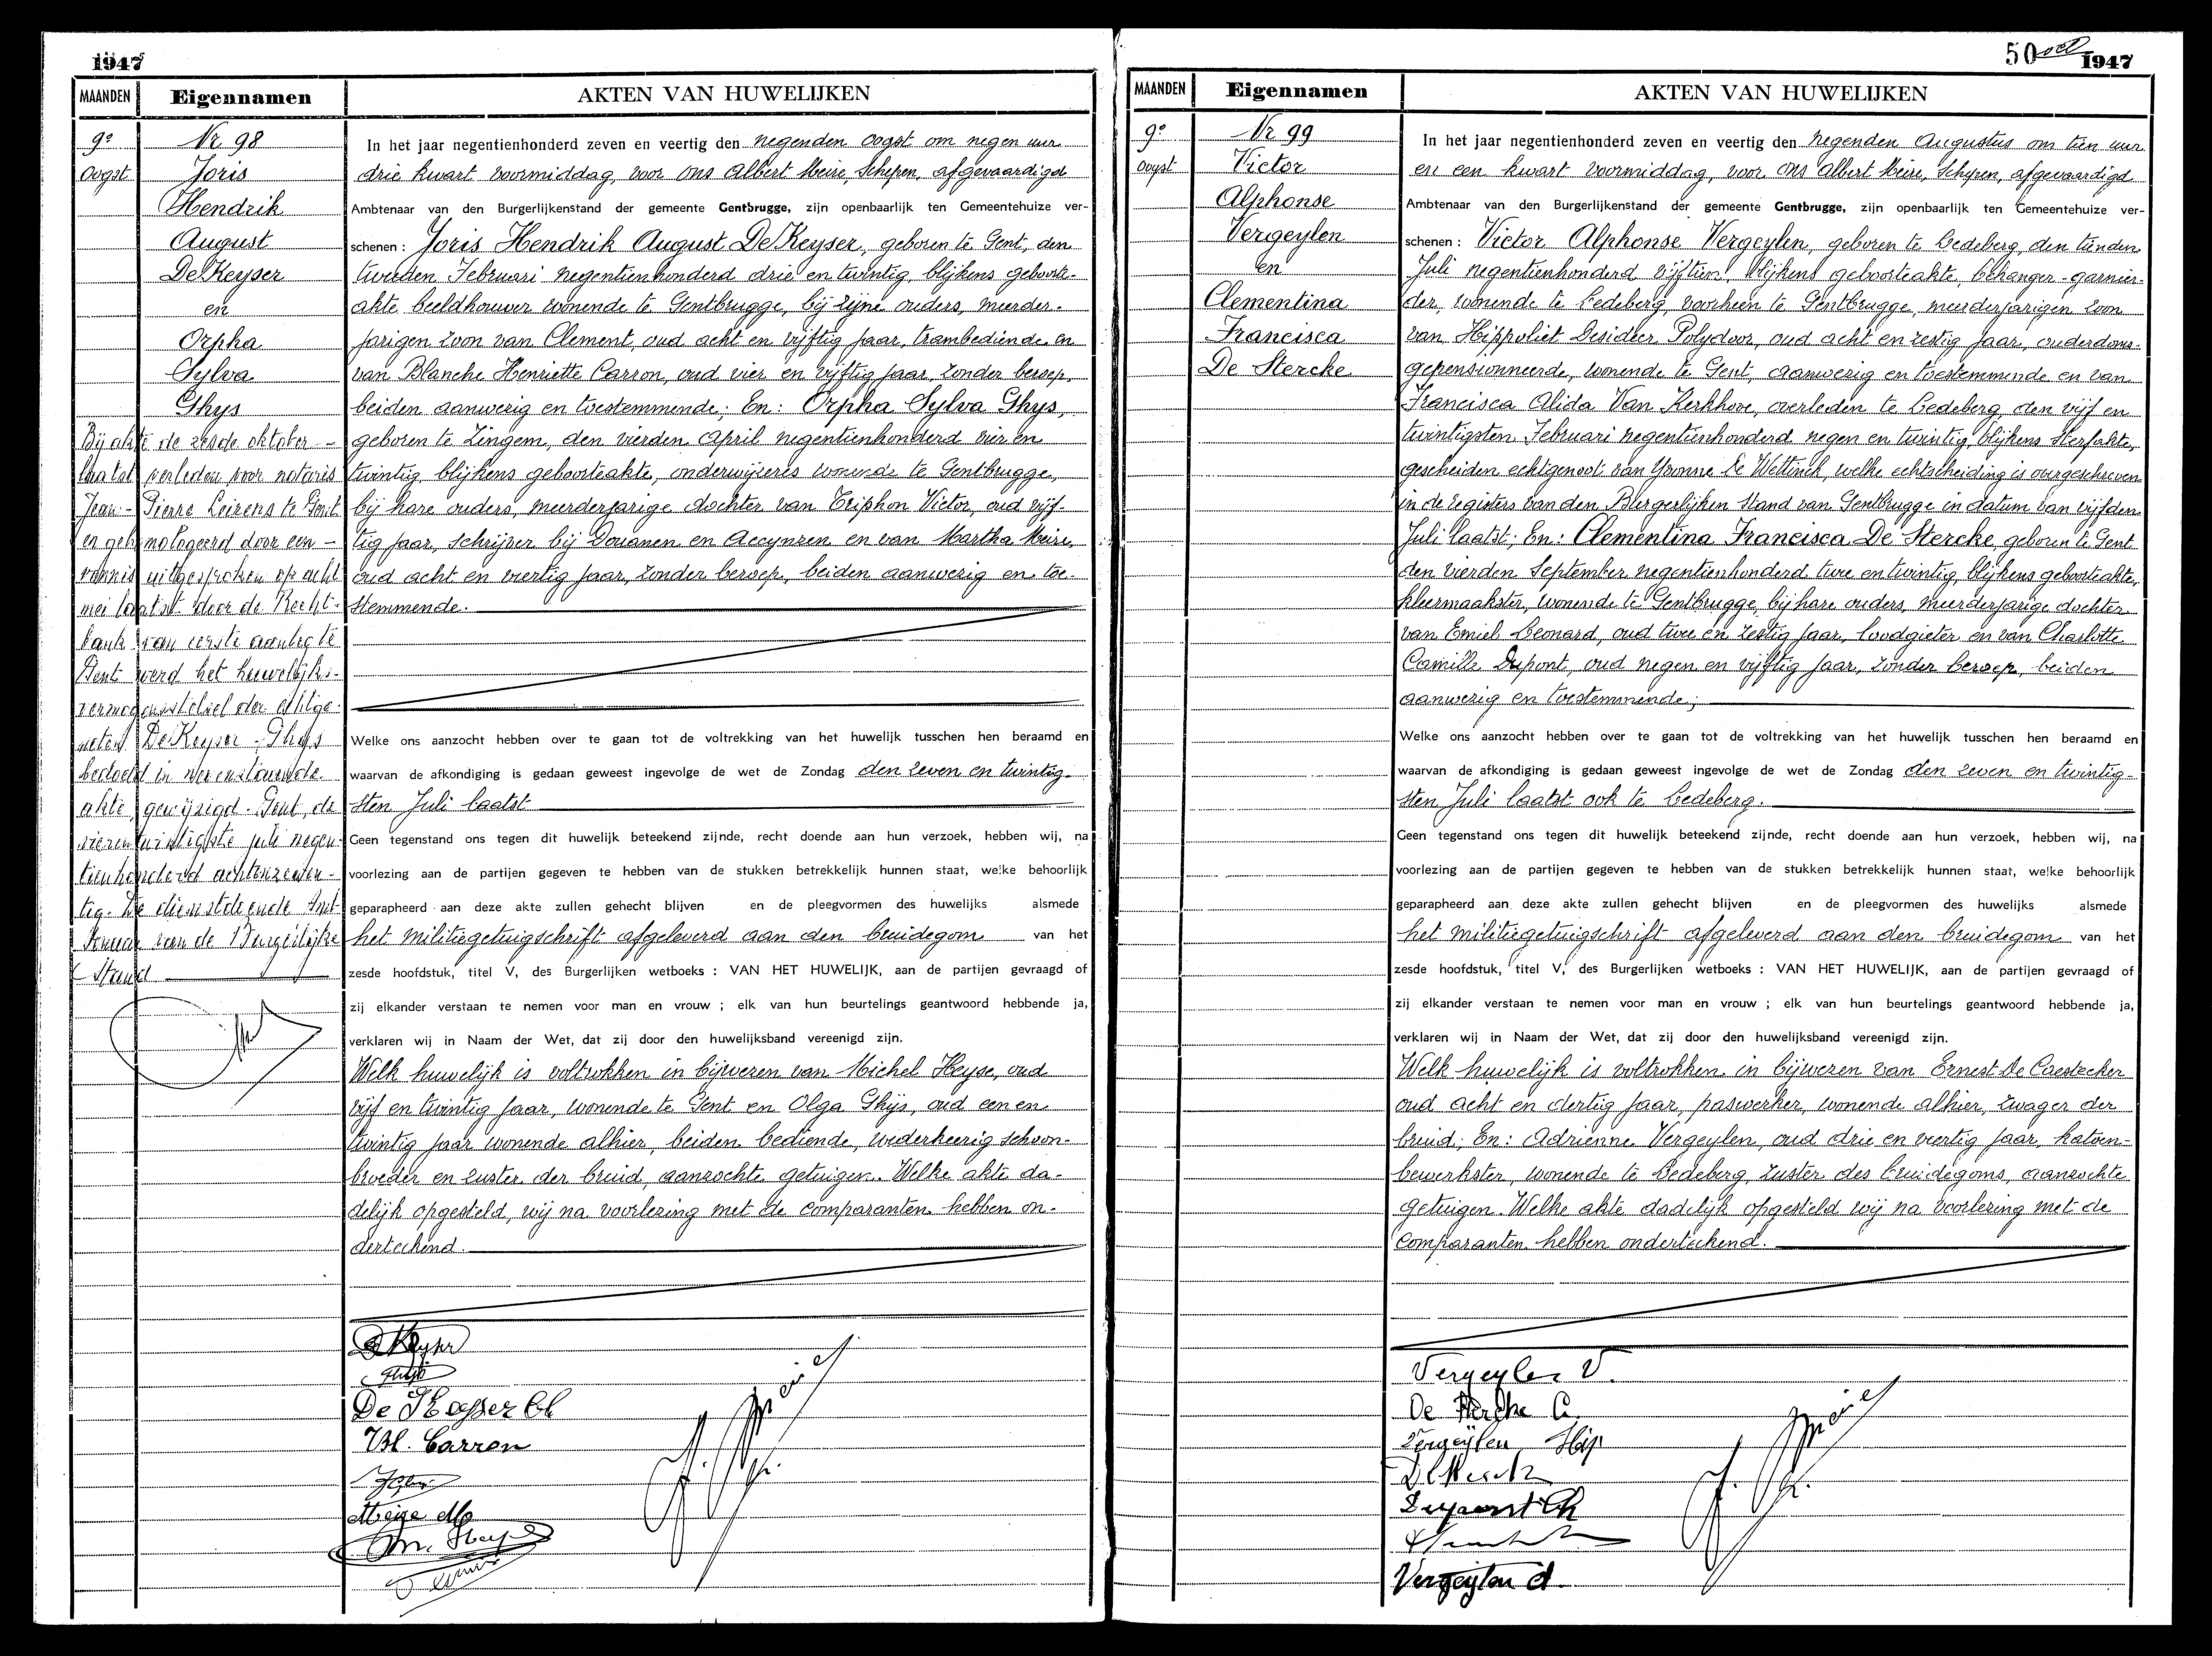 1947
MAANDEN
Eigennamen
AKTEN VAN HUWELIJKEN
9e
oogst
Nr 98
Joris
Hendrik
August
De Keyser
en
Orpha
Sylva
Ghys
Bij akte de zesde oktober -
laatst verleden voor notaris
Jean-Pierre Leirens te Gent
en gehomologeerd door een -
vonnis uitgesproken op acht
mei laatst door de Recht-
bank van eerste aanleg te
Gent werd het huwelijks-
vermogensstelsel der echtge-
noten De Keyser - Ghys
bedoeld in nevenstaande
akte gewijzigd. Gent, de
vierentwintigste juli negen-
tienhonderd achtenzeven-
tig. De dienstdoende Amt-
tenaar van de Burgerlijke
Stand
In het jaar negentienhonderd zeven en veertig den negenden oogst om negen uur
drie kwart voormiddag, voor ons Albert Meire, Schepen, afgevaardigd
Ambtenaar van den Burgerlijkenstand der gemeente Gentbrugge, zijn openbaarlijk ten Gemeentehuize ver-
schenen : Joris Hendrik August De Keyser, geboren te Gent, den
tweeden Februari negentienhonderd drie en twintig, blijkens geboorte-
akte, beeldhouwer wonende te Gentbrugge, bij zijne ouders, meerder-
jarigen zoon van Clement, oud acht en vijftig jaar, trambediende en
van Blanche Henriette Carron, oud vier en vijftig jaar, zonder beroep,
beiden aanwezig en toestemmende; En: Orpha Sylva Ghys,
geboren te Zingem, den vierden April negentienhonderd vier en
twintig, blijkens geboorteakte, onderwijzeres wonende te Gentbrugge,
bij hare ouders, meerderjarige dochter van Triphon Victor, oud vijf-
tig jaar, schrijver bij Douanen en Accynzen en van Martha Meire,
oud acht en veertig jaar, zonder beroep, beiden aanwezig en toe-
stemmende.
Welke ons aanzocht hebben over te gaan tot de voltrekking van het huwelijk tusschen hen beraamd en
waarvan de afkondiging is gedaan geweest ingevolge de wet de Zondag den zeven en twintig-
sten Juli laatst
Geen tegenstand ons tegen dit huwelijk beteekend zijnde, recht doende aan hun verzoek, hebben wij, na
voorlezing aan de partijen gegeven te hebben van de stukken betrekkelijk hunnen staat, welke behoorlijk
geparapheerd aan deze akte zullen gehecht blijven en de pleegvormen des huwelijks alsmede
het militiegetuigschrift afgeleverd aan den bruidegom van het
zesde hoofdstuk, titel V, des Burgerlijken wetboeks : VAN HET HUWELIJK, aan de partijen gevraagd of
zij elkander verstaan te nemen voor man en vrouw ; elk van hun beurtelings geantwoord hebbende ja,
verklaren wij in Naam der Wet, dat zij door den huwelijksband vereenigd zijn.
Welk huwelijk is voltrokken in bijwezen van Michel Heyse, oud
vijf en twintig jaar, wonende te Gent en Olga Ghijs, oud een en
twintig jaar wonende alhier, beiden bediende, wederkeerig schoon-
broeder en zuster der bruid, aanzochte getuigen. Welke akte da-
delijk opgesteld, wij na voorlezing met de comparanten hebben on-
derteekend.
De Keyser
Ghijs
De Keyser Cl
Bl. Carron
Meire M
M. Heyse
50
1947
MAANDEN
Eigennamen
AKTEN VAN HUWELIJKEN
9e
oogst
Nr 99
Victor
Alphonse
Vergeylen
en
Clementina
Francisca
De Stercke
In het jaar negentienhonderd zeven en veertig den negenden Augustus om tien uur
en een kwart voormiddag, voor ons Albert Meire, Schepen, afgevaardigd
Ambtenaar van den Burgerlijkenstand der gemeente Gentbrugge, zijn openbaarlijk ten Gemeentehuize ver-
schenen : Victor Alphonse Vergeylen, geboren te Ledeberg, den tienden
Juli negentienhonderd vijftien, blijkens geboorteakte, behanger-garnier-
der, wonende te Ledeberg, voorheen te Gentbrugge, meerderjarigen zoon
van Hippoliet Desideer Polydoor, oud acht en zestig jaar, ouderdoms-
gepensionneerde, wonende te Gent, aanwezig en toestemmende en van
Francisca Alida Van Kerkhove, overleden te Ledeberg, den vijf en
twintigsten Februari negentienhonderd negen en twintig, blijkens sterfakte,
gescheiden echtgenoot van Yvonne De Wettinck, welke echtscheiding is overgeschreven
in de registers van den Burgerlijken Stand van Gentbrugge in datum van vijfden
Juli laatst; En: Clementina Francisca De Stercke, geboren te Gent
den vierden September negentienhonderd twee en twintig, blijkens geboorteakte,
kleermaakster, wonende te Gentbrugge, bij hare ouders, meerderjarige dochter
van Emiel Leonard, oud twee en zestig jaar, loodgieter en van Charlotte
Camille Dupont, oud negen en vijftig jaar, zonder beroep, beiden
aanwezig en toestemmende;
Welke ons aanzocht hebben over te gaan tot de voltrekking van het huwelijk tusschen hen beraamd en
waarvan de afkondiging is gedaan geweest ingevolge de wet de Zondag den zeven en twintig-
sten Juli laatst ook te Ledeberg.
Geen tegenstand ons tegen dit huwelijk beteekend zijnde, recht doende aan hun verzoek, hebben wij, na
voorlezing aan de partijen gegeven te hebben van de stukken betrekkelijk hunnen staat, welke behoorlijk
geparapheerd aan deze akte zullen gehecht blijven en de pleegvormen des huwelijks alsmede
het militiegetuigschrift afgeleverd aan den bruidegom van het
zesde hoofdstuk, titel V, des Burgerlijken wetboeks : VAN HET HUWELIJK, aan de partijen gevraagd of
zij elkander verstaan te nemen voor man en vrouw ; elk van hun beurtelings geantwoord hebbende ja,
verklaren wij in Naam der Wet, dat zij door den huwelijksband vereenigd zijn.
Welk huwelijk is voltrokken in bijwezen van Ernest De Caestecker
oud acht en dertig jaar, paswerker, wonende alhier, zwager der
bruid; En: Adrienne Vergeylen, oud drie en veertig jaar, katoen-
bewerkster, wonende te Ledeberg, zuster des bruidegoms, aanzochte
getuigen. Welke akte dadelijk opgesteld wij na voorlezing met de
comparanten hebben onderteekend.
Vergeylen V.
De Stercke C.
Vergeylen Hip
Dupont Ch
Vergeylen A.